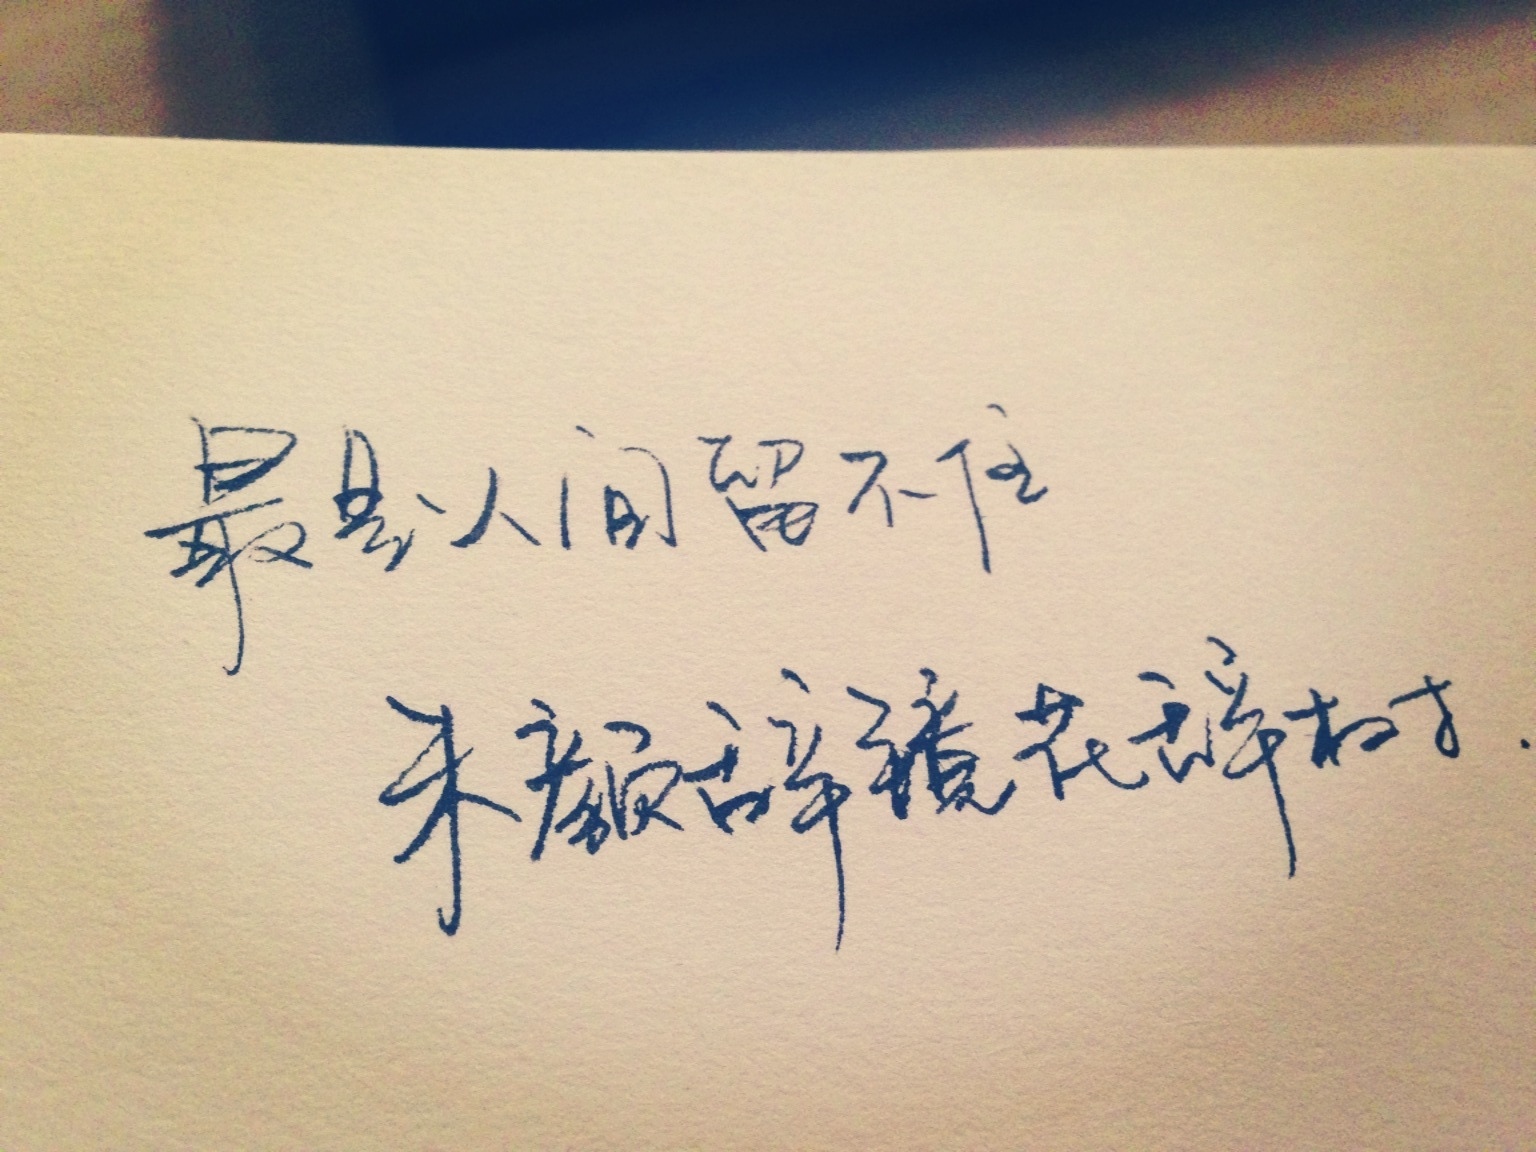 最是人间留不住
朱颜辞镜花辞树.